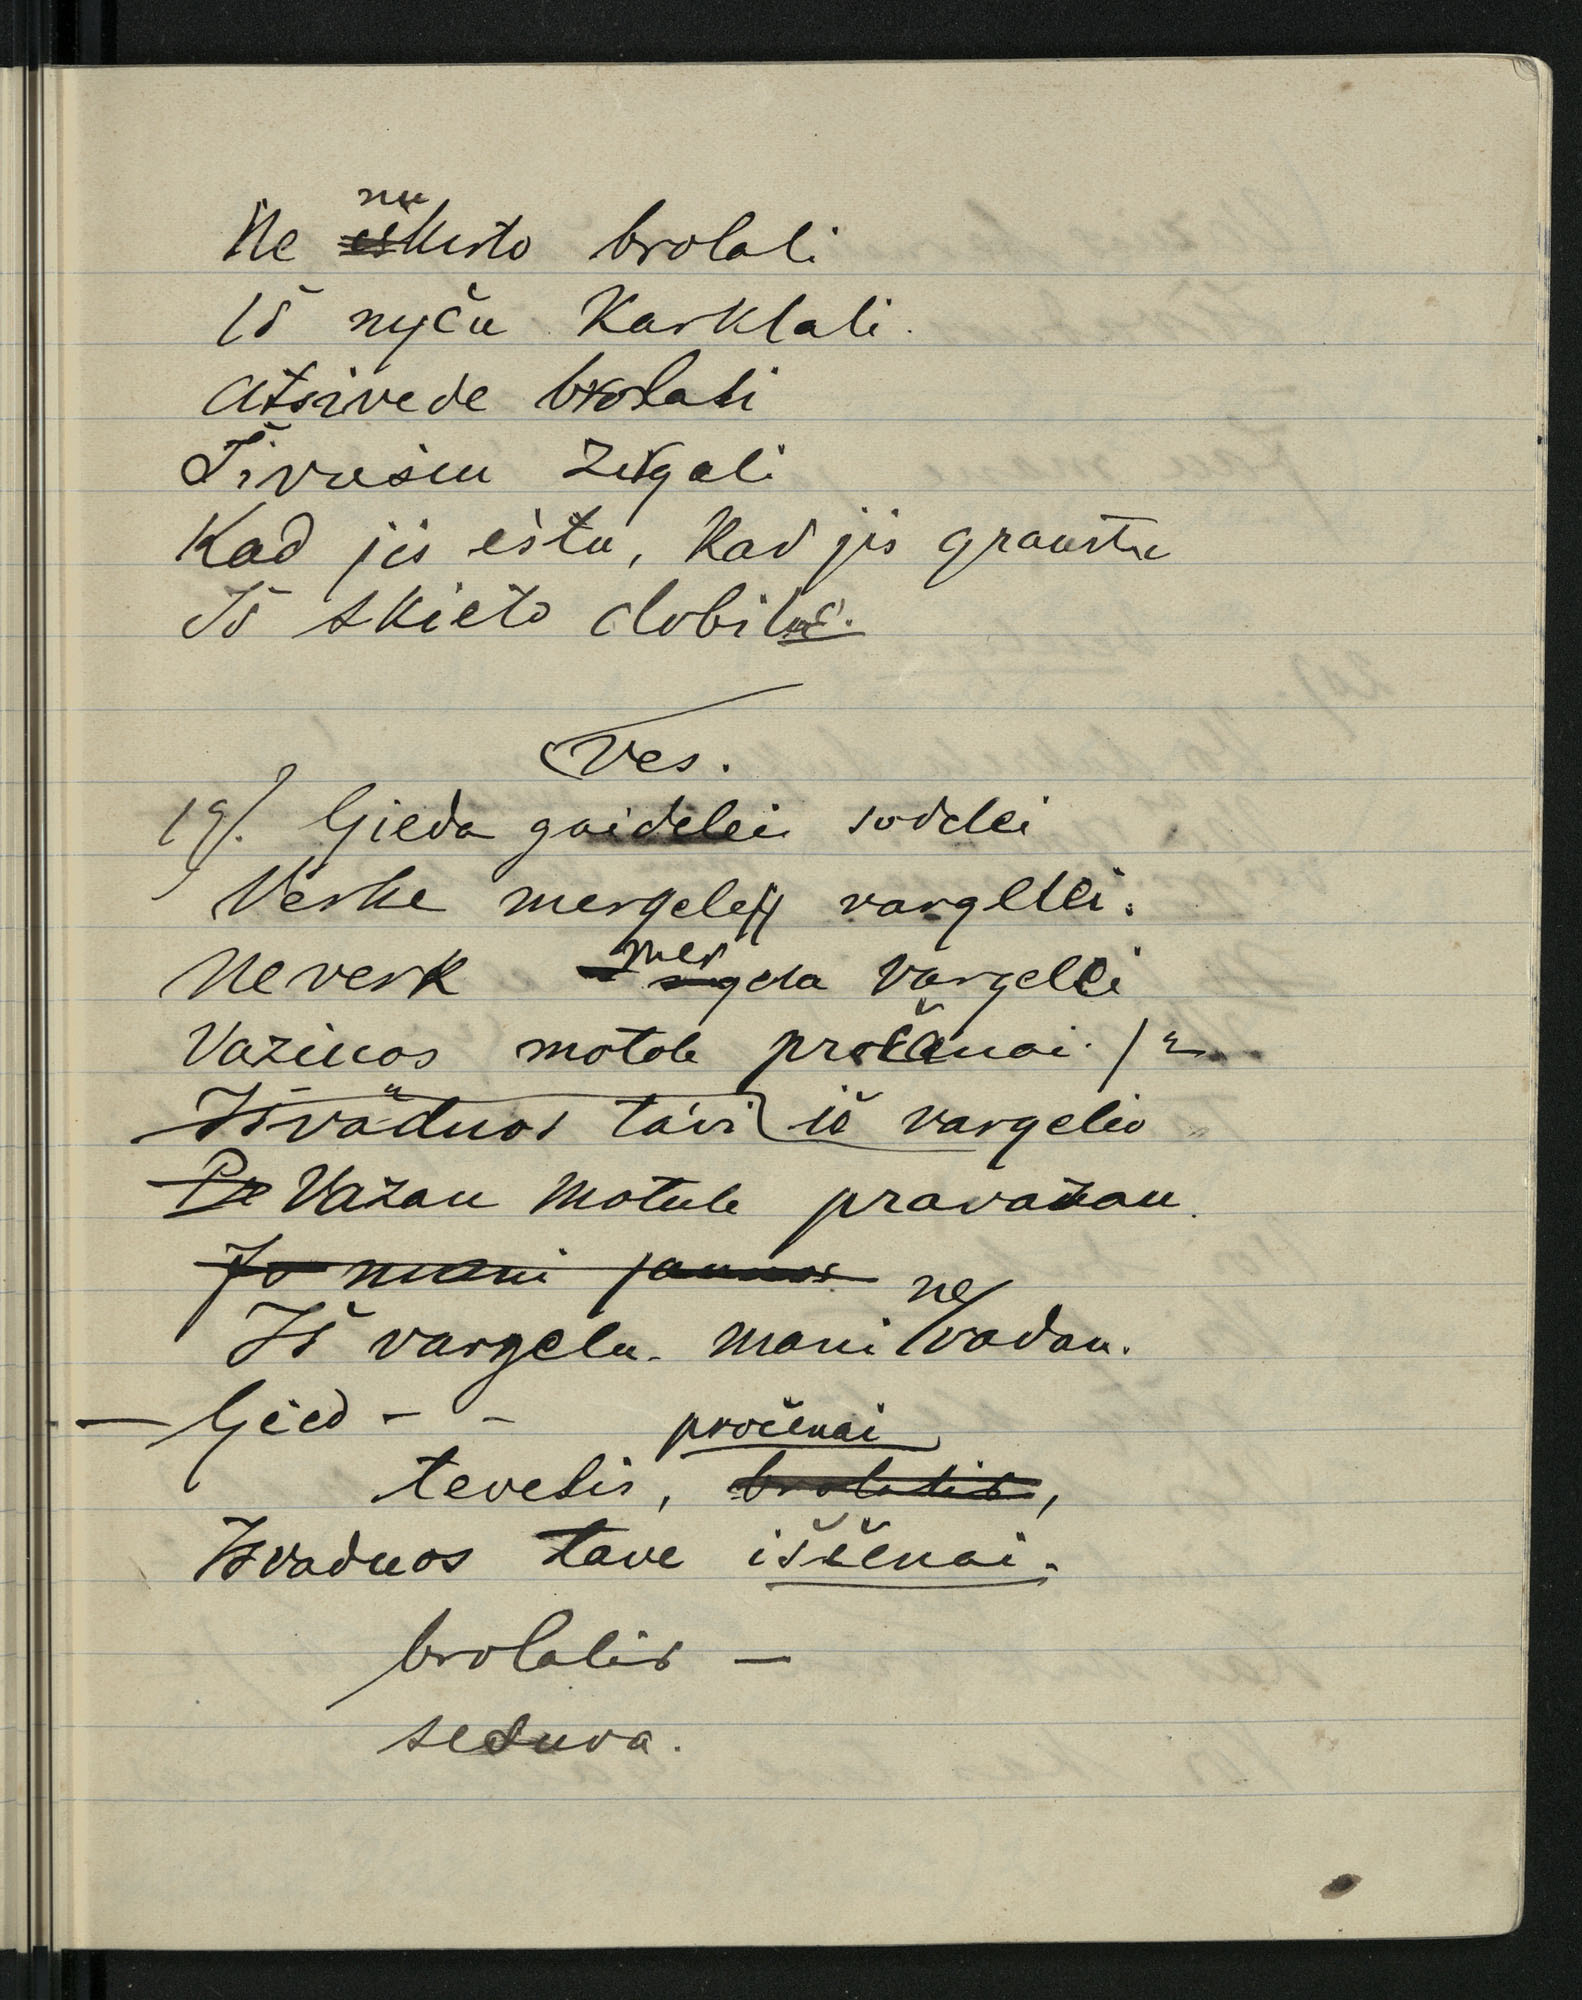 Ne nukirto brolali
Iš nyču Karklali.
Atsivede brolali
Širvusiu Zirgali
Kad jis estu, Kad jis graustu
Iš skieto dobilu.
Ves.
19/. Gieda gaidelei sodelei
Verke mergele vargelei.
Neverk mergela vargelei
Vaziuos motole pročenai. /2
Išvaduos tavi iš vargelio
Važau Motule pravažau.
Jo mani jaunos
Iš vargelu. mani nevadau.
— Gied - -
pročenai
tevelis, brolelis,
Išvaduos tave iščenai.
brolalis —
seduva.